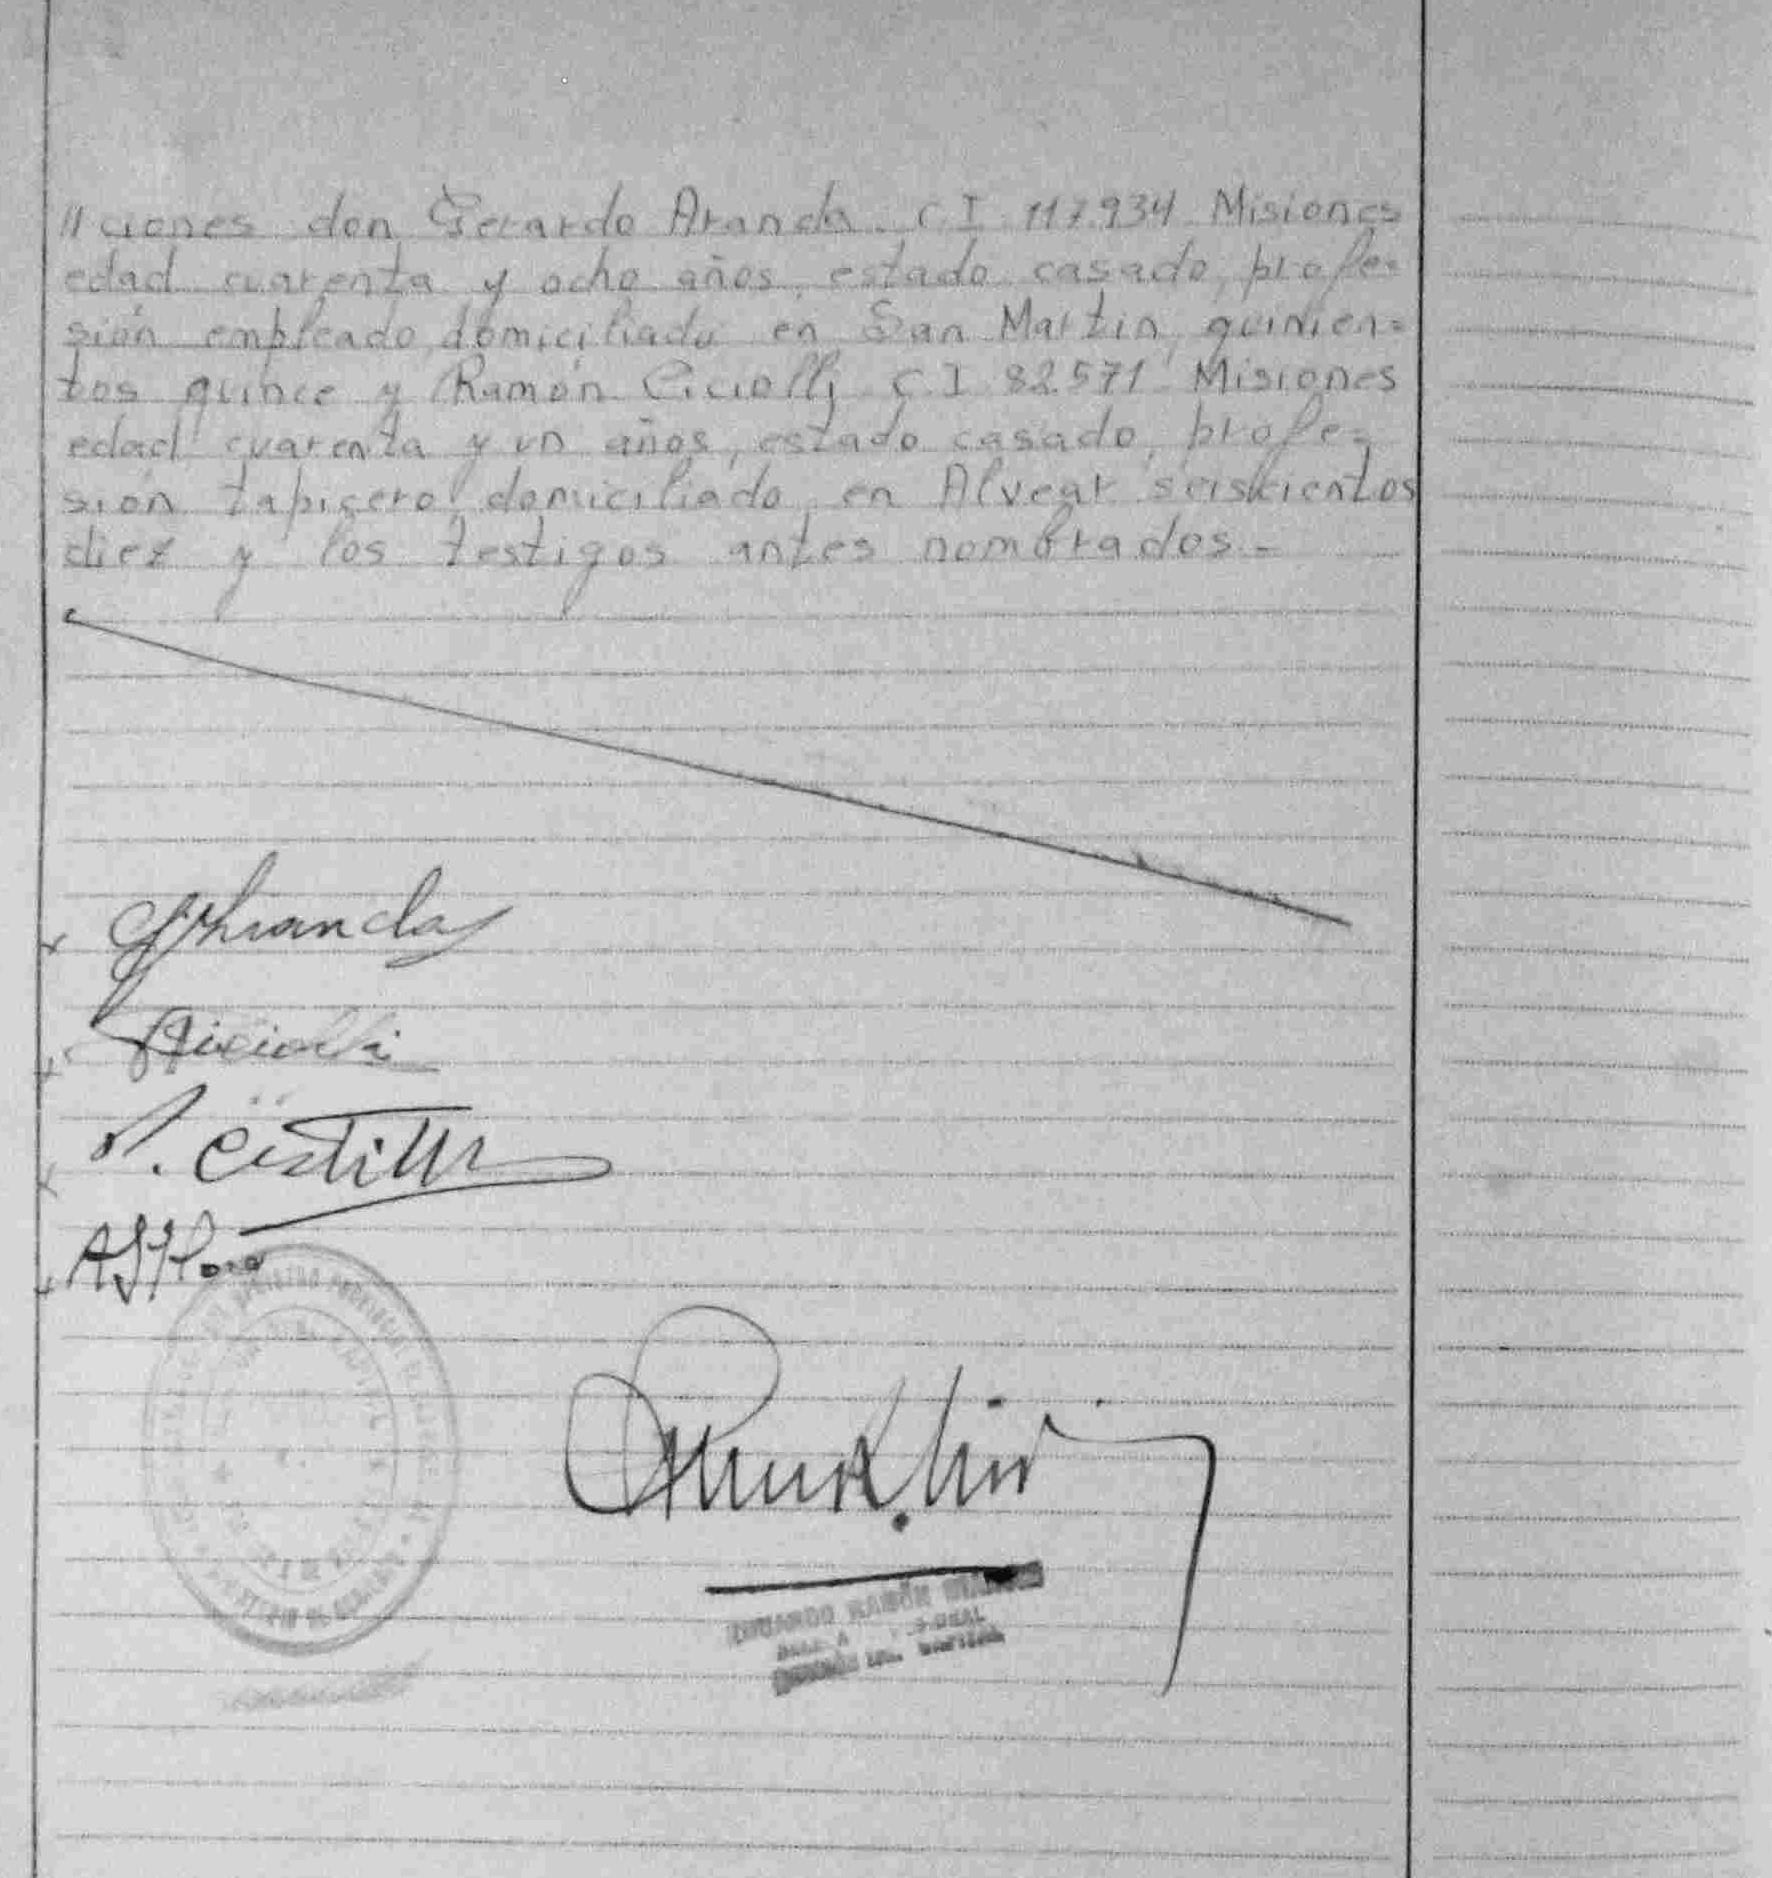 //ciones don Gerardo Aranda. C I 117.934 Misiones
edad cuarenta y ocho años, estado casado, profe=
sión empleado, domiciliado en San Martín, quinien=
tos quince y Ramón Ciciolli C I 82571 Misiones
edad cuarenta y un años, estado casado, profe=
sión tapicero, domiciliado en Alvear seiscientos
diez y los testigos antes nombrados.=
GAranda
Ciciolli
EDUARDO RAMÓN